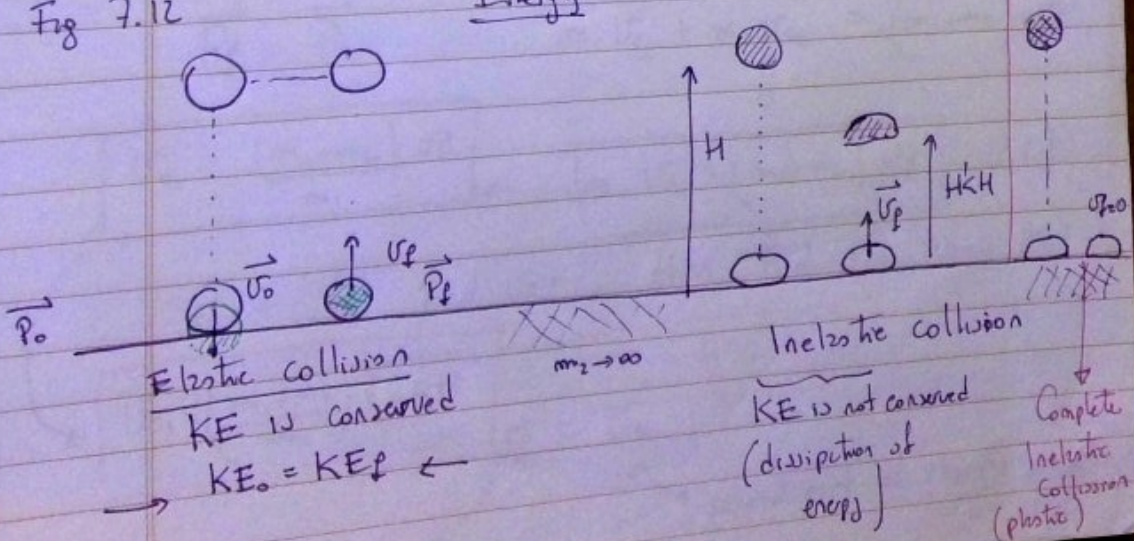 Fig 7.12
Energy
H
H'<H
v⃗f
vf=0
P⃗o
v⃗o
vf
P⃗f
m₂→∞
Elastic collision
KE is conserved
KEo = KEf ←
→
Inelastic collision
KE is not conserved
(dissipation of
energy)
Complete
Inelastic
Collission
(plastic)